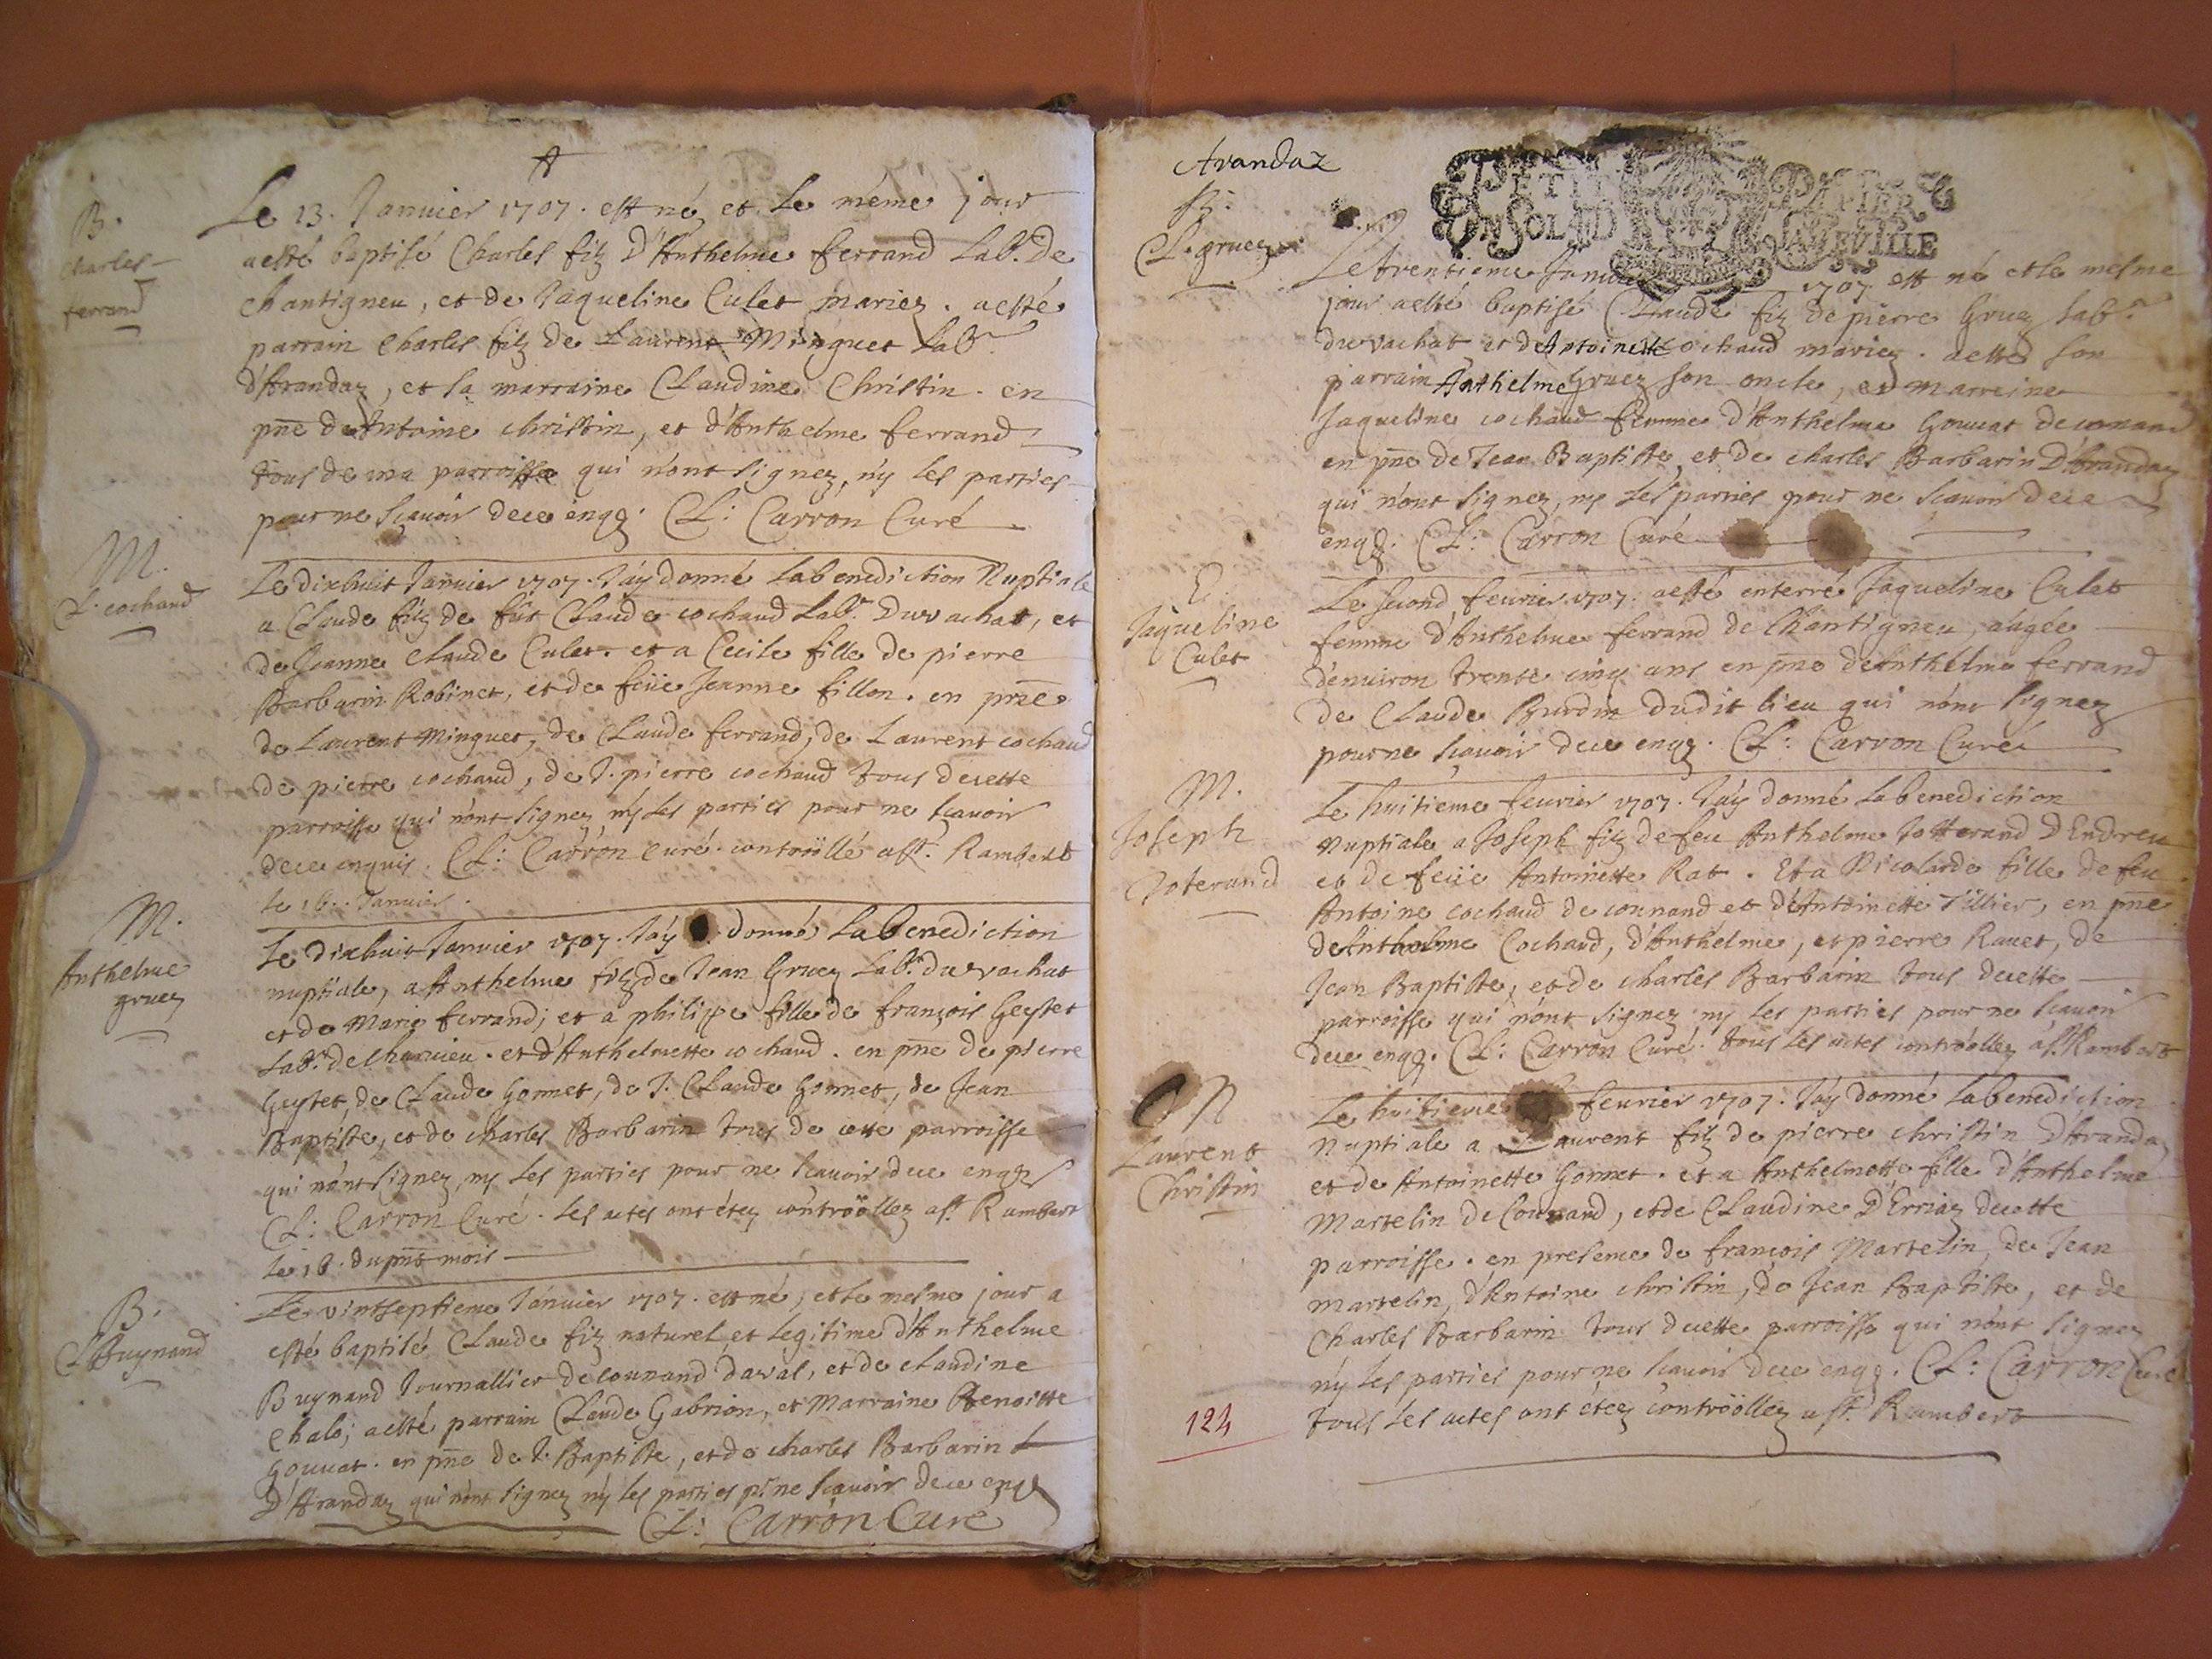 B.
Charles
ferrand
Le 13. Janvier 1707. est né, et le même jour
a esté baptisé Charles filz d'Anthelme ferrand Labr. de
chantigneu, et de Jaqueline Culet mariez. a esté
parrain Charles filz de Laurent Minguet Labr
d'Arandaz, et la marraine Claudine Christin. en
pñe de Antoine christin, et d'Anthelme ferrand
tous de ma parroisse qui n'ont signez, ny les parties
pour ne sçavoir de ce enqz. Cl: Carron Curé
M.
Cl. cochand
Le dixhuit Janvier 1707. J'ay donné la benediction Nuptiale
a Claude filz de fût Claude cochand Labr. du vachat, et
de Jeanne Claude Culet. et a Cecile fille de pierre
Barbarin Robinet, et de feüe Jeanne fillon. en pñe
de Laurent Minguet, de Claude ferrand, de Laurent cochand
de pierre cochand, de J. pierre cochand tous de cette
parroisse qui n'ont signez ny les parties pour ne sçavoir
de ce enquis. Cl: Carron curé. controöllé a st. Rambert
le 16. Janvier.
M.
Anthelme
gruez
Le dixhuit Janvier 1707. J'ay donné la Benediction
nuptiale, a Anthelme filz de Jean Gruez Labr. du vachat
et de Marie ferrand; et a philippe fille de françois Geytet
Labr. de Charvieu. et d'Anthelmette cochand. en pñe de pierre
Geytet, de Claude Gonnet, de J. Claude Gonnet, de Jean
Baptiste, et de charles Barbarin tous de cette parroisse
qui n'ont signez, ny les parties pour ne sçavoir de ce enqz
Cl: Carron Curé. les actes ont étez controöllez a st. Rambert
le 16. du pñt mois
B.
Cl Buynand
Le vintseptieme Janvier 1707. est né, et le mesme jour a
esté baptisé Claude filz naturel et legitime d'Anthelme
Buynand Journallier de counand d'aval, et de claudine
Chalo; a esté parrain Claude Gabrion, et Marraine Benoitte
Gouvat. en pñe de J. Baptiste, et de charles Barbarin
D'Arandaz qui n'ont signez ny les parties pr. ne sçavoir de ce enqz
Cl: Carron Curé
Arandaz
PETIT PAPIER
UN SOL LA DEVILLE
B.
Cl. gruez
Le trentieme Janvier 1707 est né et le mesme
jour a esté baptisé Claude filz de pierre Gruez Labr.
du vachat et de Antoinette cochand mariez. a esté son
parrain Anthelme Gruez son oncle, et marreine
Jaqueline cochaud femme d'Anthelme Gouvat de connand
en pñe de Jean Baptiste, et de charles Barbarin D'Arandaz
qui n'ont signez, ny les parties pour ne sçavoir de ce
enqz. Cl: Carron Curé.
E.
Jaqueline
Culet
Le second fevrier 1707. a esté enterré Jaqueline Culet
femme d'Anthelme ferrand de Chantigneu, aagée
d'environ trente cinq ans en pñe de Anthelme ferrand
de Claude Burdin dudit lieu qui n'ont signez
pour ne sçavoir de ce enqz. Cl: Carron Curé
M.
Joseph
Joterand
Le huitieme fevrier 1707. J'ay donné la benediction
Nuptiale a Joseph filz de feu Anthelme Jotterand D'Endrieu
et de feüe Antoinette Rat. Et a Nicolarde fille de feu
Antoine cochaud de connand et d'Antoinette Tillier, en pñe
de Anthelme Cochand, d'Anthelme, et pierre Ravet, de
Jean Baptiste, et de charles Barbarin tous de cette
parroisse qui n'ont signez ny les parties pour ne sçavoir
de ce enqz. Cl: Carron Curé. tous les actes controöllez a st. Rambert
M
Laurent
Christin
Le huitieme fevrier 1707. J'ay donné la benediction
Nuptiale a Laurent filz de pierre christin D'Arandaz
et de Antoinette Gonnet. et a Anthelmette fille d'Anthelme
Martelin de Counand, et de Claudine D'Erriaz de cette
parroisse. en presence de françois Martelin, de Jean
Martelin, d'Antoine christin, de Jean Baptiste, et de
Charles Barbarin tous de cette parroisse qui n'ont signez
ny les parties pour ne sçavoir de ce enqz. Cl: Carron Curé
tous les actes ont étez controöllez a st. Rambert
124